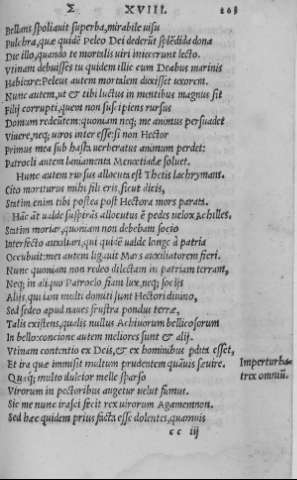 Σ XVIII. 263
Bellans spoliauit superba, mirabile uisu
Pulchra, quæ quidē Peleo Dei dederūt splēdida dona
Die illo, quando te mortalis uiri iniecerunt lecto.
Vtinam debuisses tu quidem illic cum Deabus marinis
Habitare: Peleus autem mortalem duxisset uxorem.
Nunc autem, ut & tibi luctus in mentibus magnus sit
Filij corrupti, quem non suscipiens rursus
Domum redeūtem: quoniam neq; me animus persuadet
Viuere, neq; uiros inter esse: si non Hector
Primus mea sub hasta uerberatus animam perdet:
Patrocli autem laniamenta Menœtiadæ soluet.
Hunc autem rursus allocuta est Thetis lachrymans.
Cito moriturus mihi fili eris, sicut dicis,
Statim enim tibi postea post Hectora mors parata.
Hāc āt ualde suspirās allocutus ē pedes uelox Achilles,
Statim moriar, quoniam non debebam socio
Interfecto auxiliari, qui quidē ualde longe à patria
Occubuit: mei autem Mars auxiliatorem fieri.
Nunc quoniam non redeo dilectam in patriam terram,
Neq; in aliquo Patroclo fiam lux, neq; socijs
Alijs, qui iam multi domiti sunt Hectori diuino,
Sed sedeo apud naues frustra pondus terræ,
Talis existens, qualis nullus Achiuorum bellicosorum
In bello: concione autem meliores sunt & alij.
Vtinam contentio ex Deis, & ex hominibus esset,
Et ira quæ immisit multum prudentem quāuis sæuire.
Imperturba=
trix omniū.
Quæq; multo dulcior melle sparso
Virorum in pectoribus augetur uelut fumus.
Sic me nunc irasci fecit rex uirorum Agamemnon.
Sed hæc quidem prius facta esse dolentes, quamuis
cc iij